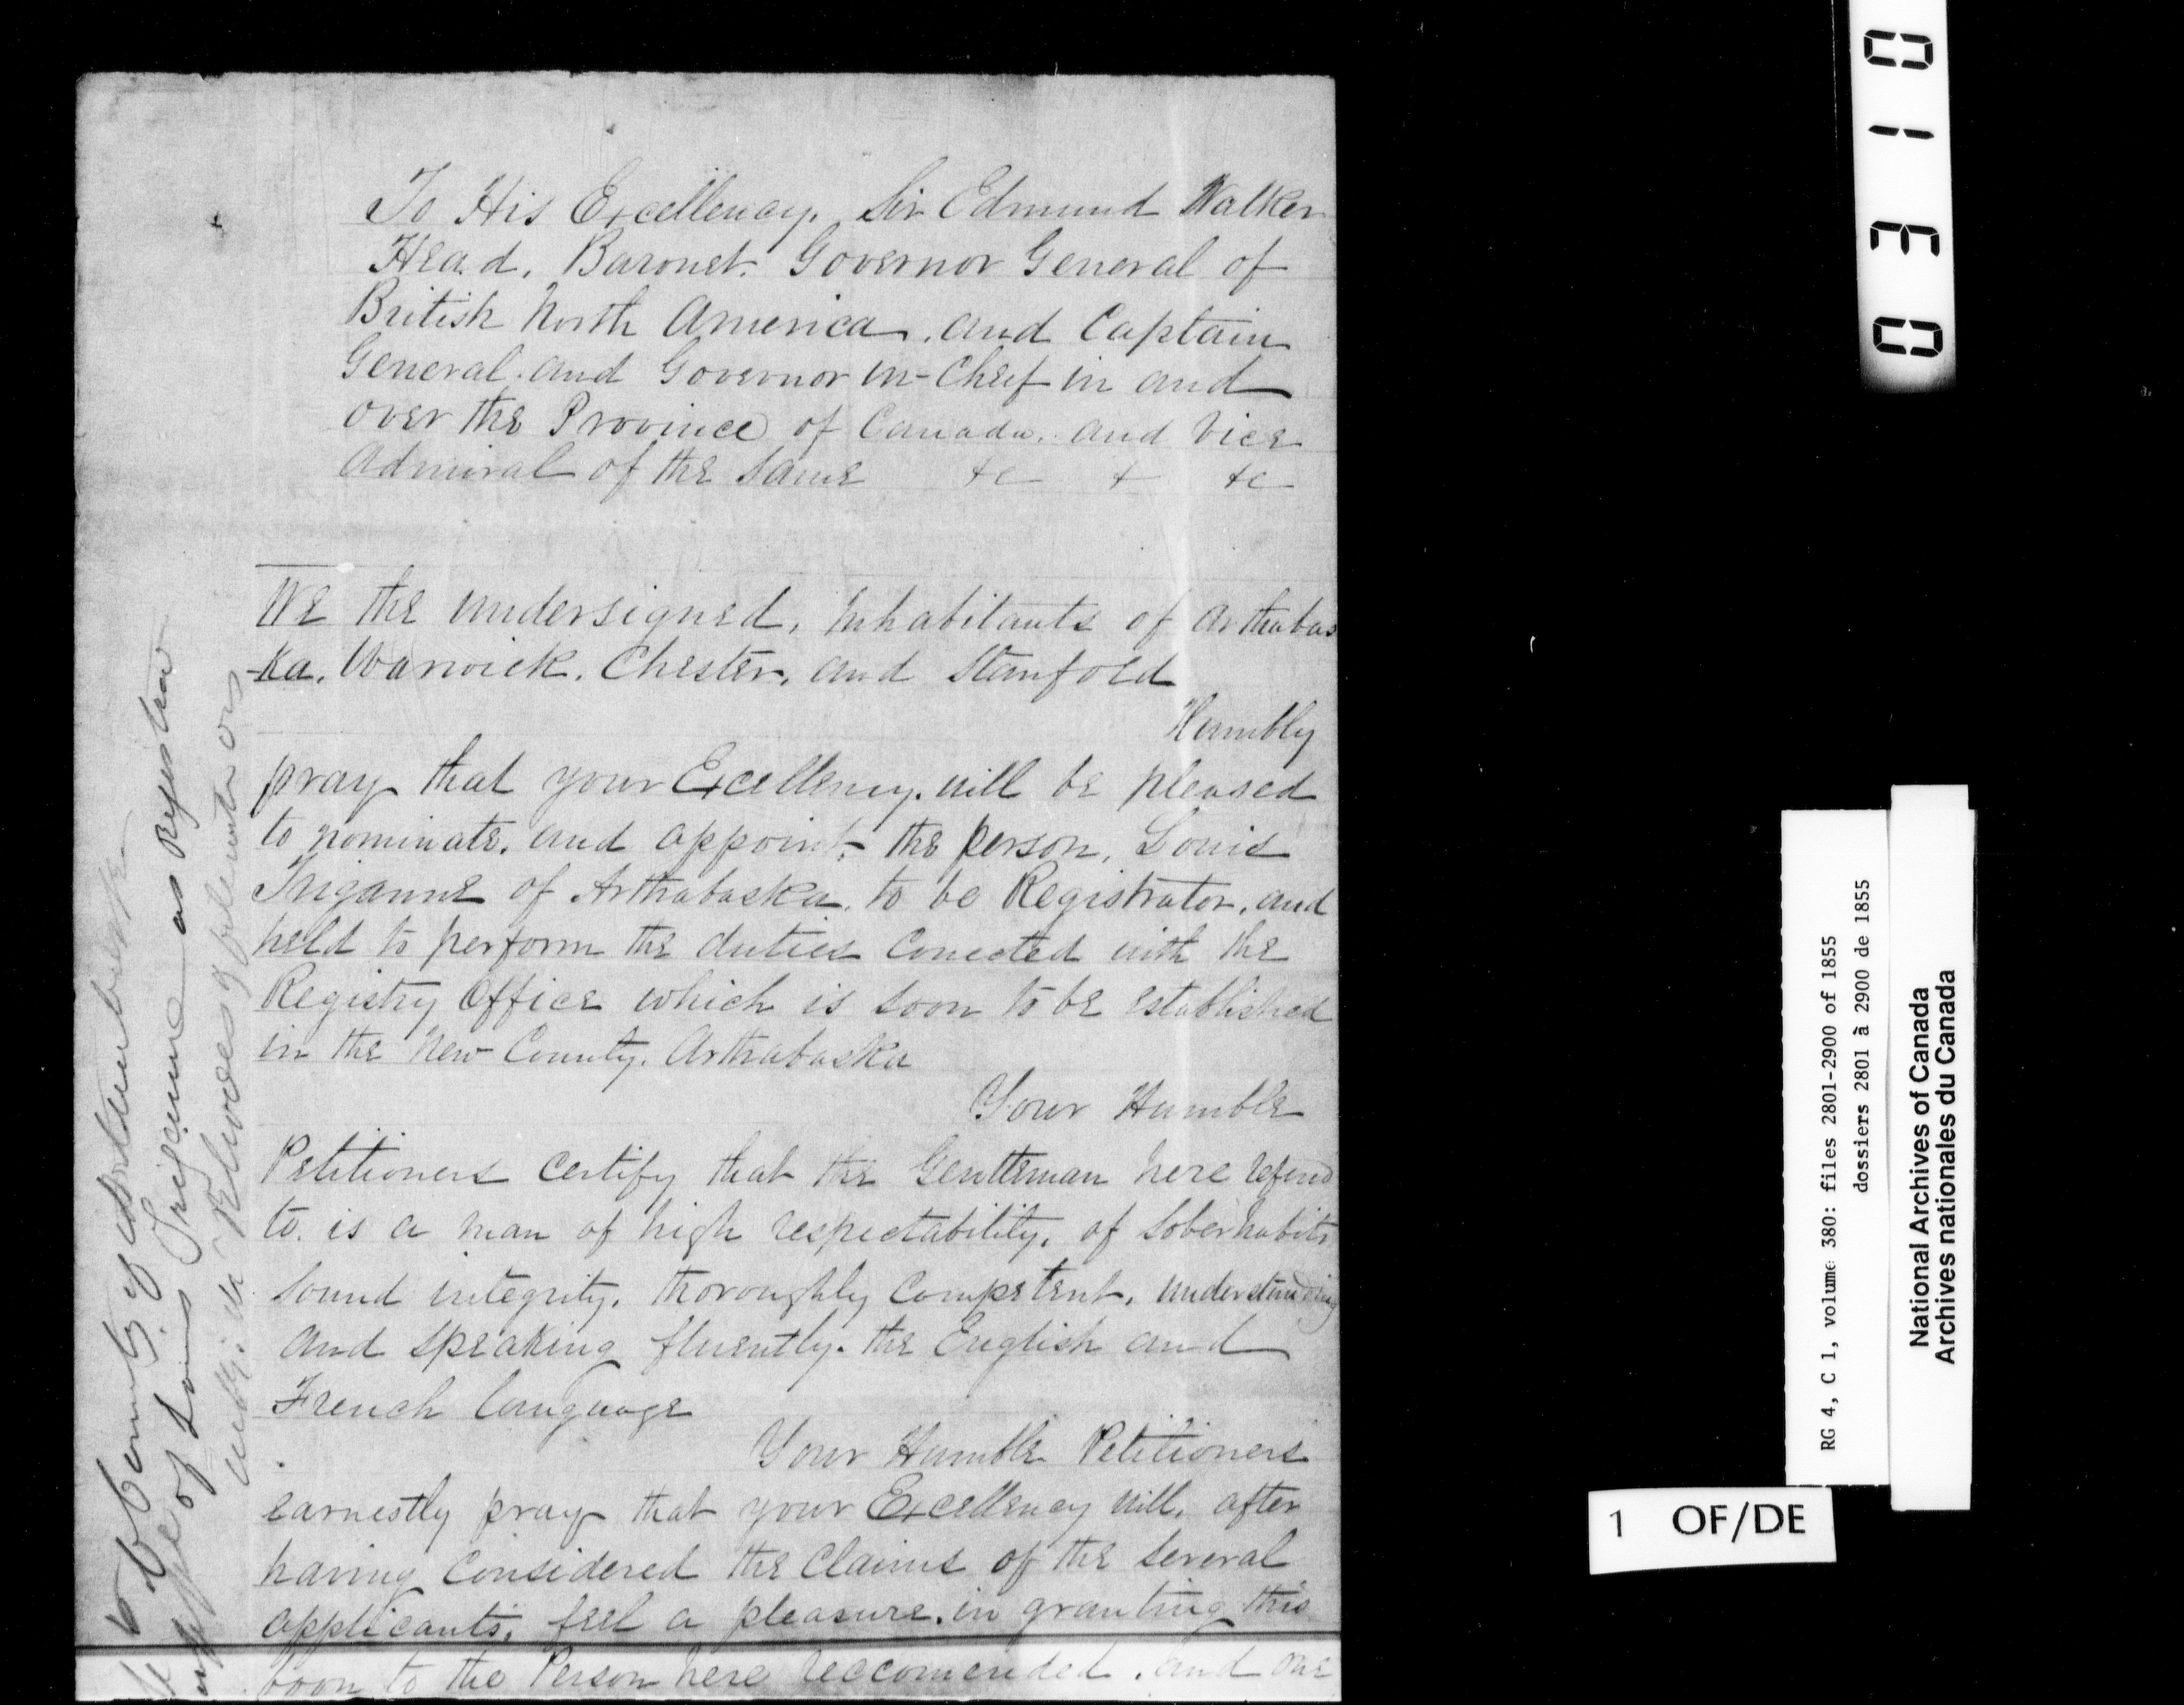 To His Excellency. Sir Edmund Walker
Head. Baronet. Governor General of
British North America. and Captain
General. and Governor in-Chief in and
over the Province of Canada. and Vice
Admiral of the Same &c & &c
We the undersigned. Inhabitants of Arthabas
-ka. Warwick. Chester. and Stanfold
Humbly
pray that your Excellency. will be pleased
to nominate. and appoint. the person. Louis
of Arthabaska. to be Registrator. and
held to perform the duties Conected with the
Registry Office which is soon to be established
in the New County. Arthabaska
Your Humble
Petitioners Certify that the Gentleman here refered
to. is a man of high respectability. of Sober habits
Sound integrity. thoroughly Competent. understanding
and speaking fluently. the English and
French language
Your Humble Petitioners
earnestly pray that your Excellency will. after
having Considered the Claims of the Several
applicants. feel a pleasure. in granting this
boon to the Person here reccomended. and one
County of
of Louis as Registrar
0 1 3 0
RG 4, C 1, volume 380: files 2801-2900 of 1855
dossiers 2801 à 2900 de 1855
National Archives of Canada
Archives nationales du Canada
1 OF/DE